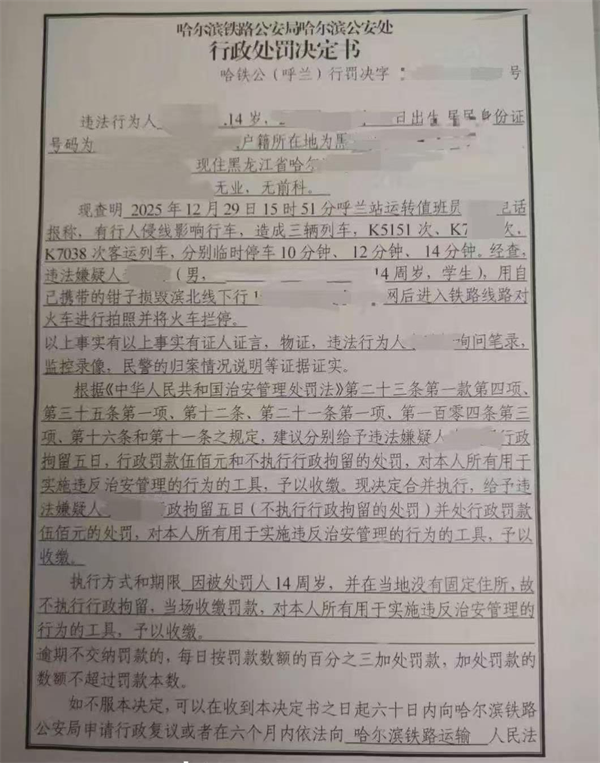 哈尔滨铁路公安局哈尔滨公安处
行政处罚决定书
哈铁公（呼兰）行罚决字 号
违法行为人 ,14岁, 日出生 居民身份证
号码为 户籍所在地为黑
现住黑龙江省哈尔
无业，无前科。
现查明 2025年12月29日15时51分呼兰站运转值班员 电话
报称，有行人侵线影响行车，造成三辆列车，K5151次、K7 次、
K7038次客运列车，分别临时停车10分钟、12分钟、14分钟。经查，
违法嫌疑人 （男， 14周岁，学生），用自
己携带的钳子损毁滨北线下行 网后进入铁路线路对
火车进行拍照并将火车拦停。
以上事实有以上事实有证人证言，物证，违法行为人 询问笔录，
监控录像，民警的归案情况说明等证据证实。
根据《中华人民共和国治安管理处罚法》第二十三条第一款第四项、
第三十五条第一项、第十二条、第二十一条第一项、第一百零四条第三
项、第十六条和第十一条之规定，建议分别给予违法嫌疑人 行政
拘留五日，行政罚款伍佰元和不执行行政拘留的处罚，对本人所有用于
实施违反治安管理的行为的工具，予以收缴。现决定合并执行，给予违
法嫌疑人 行政拘留五日（不执行行政拘留的处罚）并处行政罚款
伍佰元的处罚，对本人所有用于实施违反治安管理的行为的工具，予以
收缴。
执行方式和期限 因被处罚人14周岁，并在当地没有固定住所，故
不执行行政拘留，当场收缴罚款，对本人所有用于实施违反治安管理的
行为的工具，予以收缴。
逾期不交纳罚款的，每日按罚款数额的百分之三加处罚款，加处罚款的
数额不超过罚款本数。
如不服本决定，可以在收到本决定书之日起六十日内向哈尔滨铁路
公安局申请行政复议或者在六个月内依法向 哈尔滨铁路运输 人民法